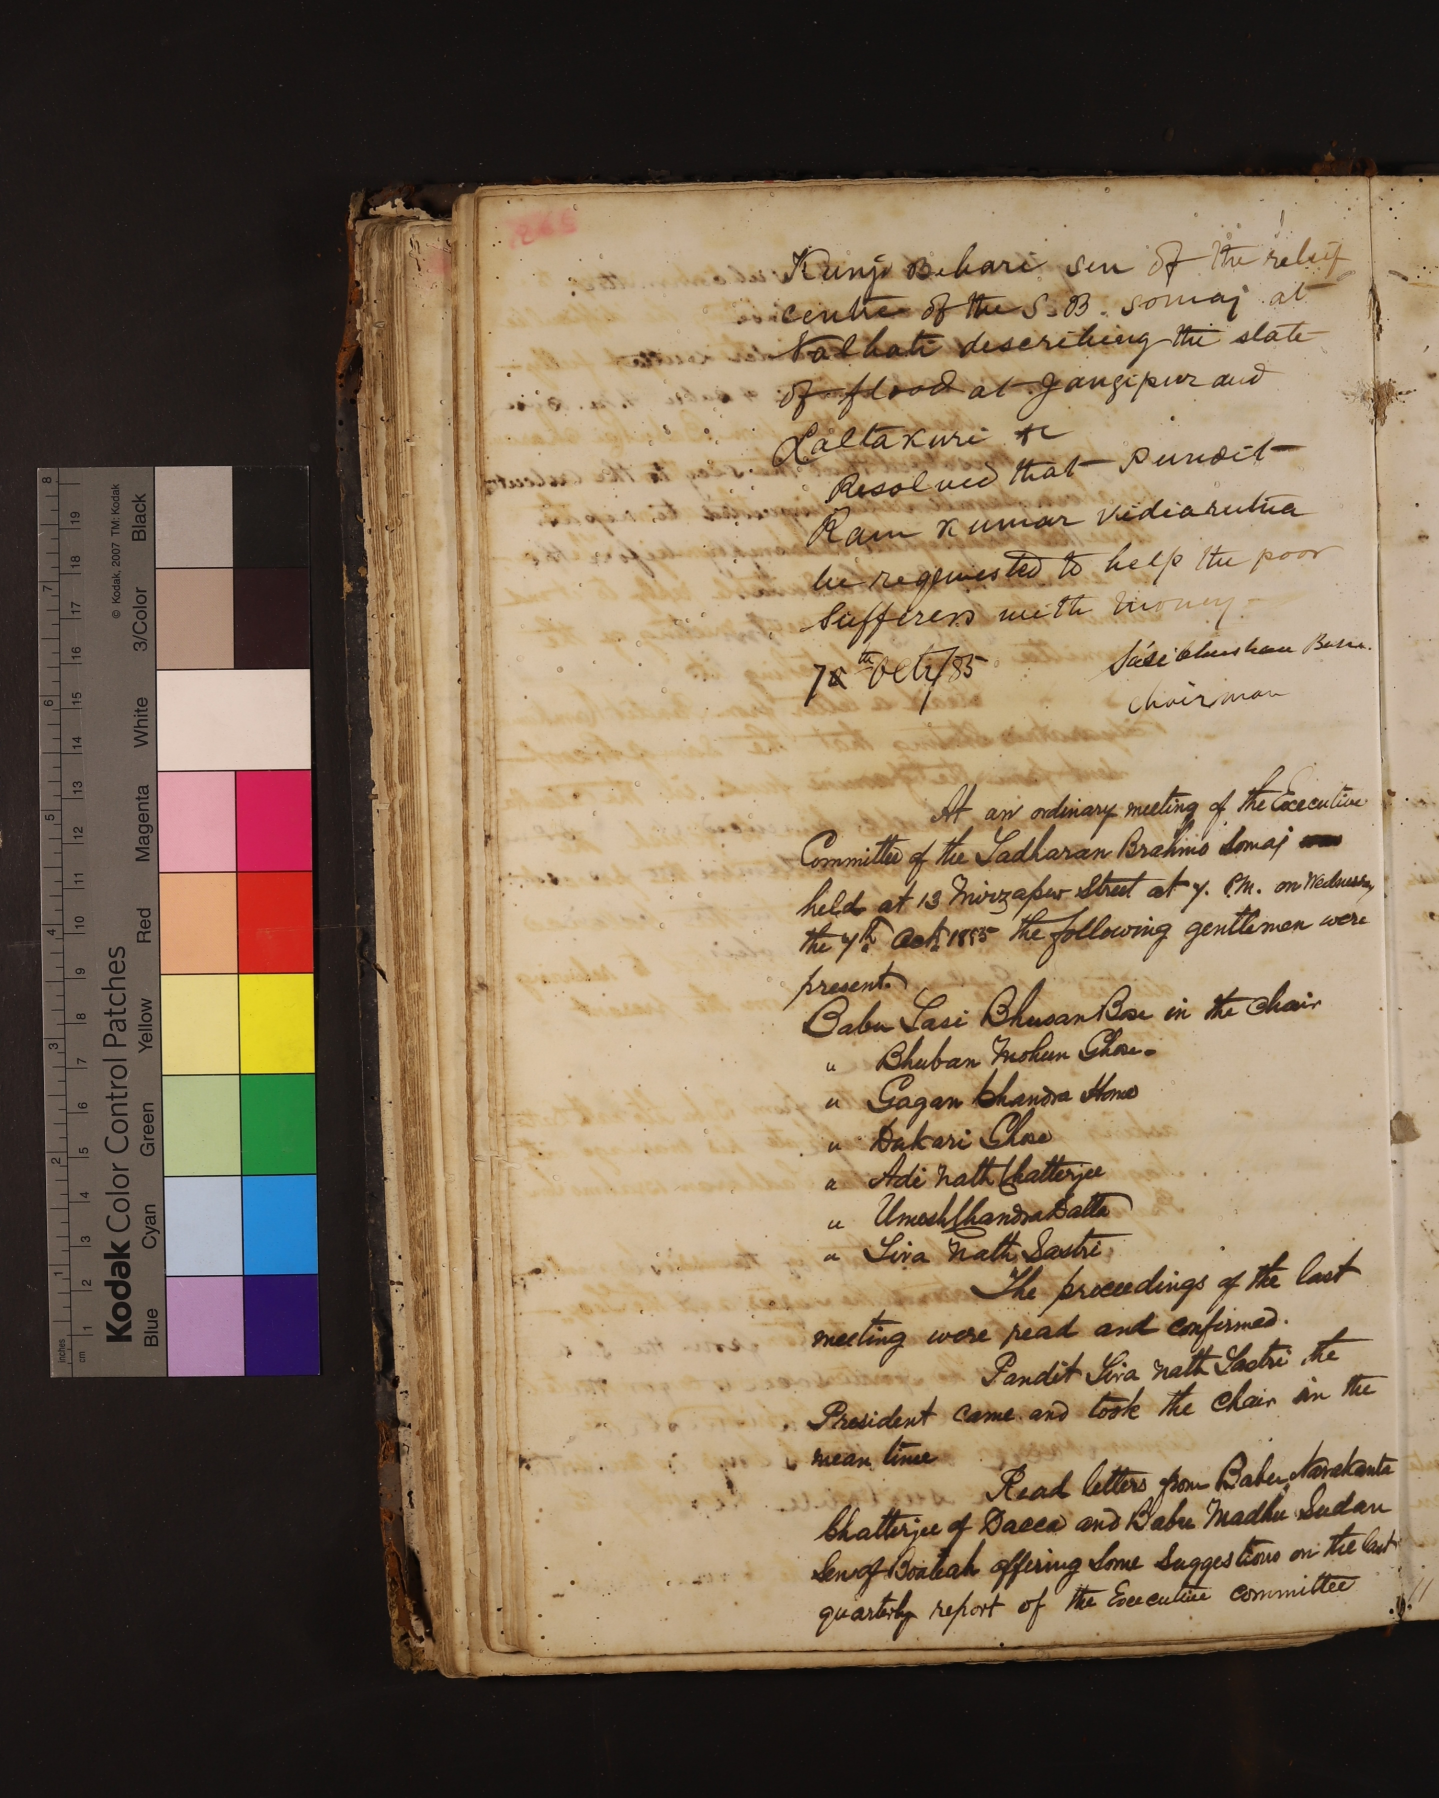 Kunjo Behari Sen of the relief
centre of the S. B. Somaj at
Nalhati describing the state
of flood at Jangipur and
Laltakuri &c
Resolved that Pundit
Ram Kumar Vidiarutna
be requested to help the poor
Sufferers with money.
7th Oct/85
Sasi Bhushan Basu.
Chairman
At an ordinary meeting of the Executive
Committee of the Sadharan Brahmo Somaj
held at 13 Mirzapur Street at 7. P.M. on Wednesday
the 7th Oct. 1885 the following gentlemen were
present.
Babu Sasi Bhusan Bose in the Chair
" Bhuban Mohun Ghose.
" Gagan Chandra Home
" Dukari Ghose
" Adi Nath Chatterjee
" Umesh Chandra Datta
" Siva Nath Sastri
The proceedings of the last
meeting were read and confirmed.
Pandit Siva Nath Sastri the
President came and took the Chair in the
mean time
Read letters from Babu Navakanta
Chatterjee of Dacca and Babu Madhu Sudan
Sen of Boaleah offering Some Suggestions on the last
quarterly report of the Executive committee
inches
cm
1 2 3 4 5 6 7 8
1 2 3 4 5 6 7 8 9 10 11 12 13 14 15 16 17 18 19
Kodak Color Control Patches
© Kodak, 2007 TM: Kodak
Blue
Cyan
Green
Yellow
Red
Magenta
White
3/Color
Black